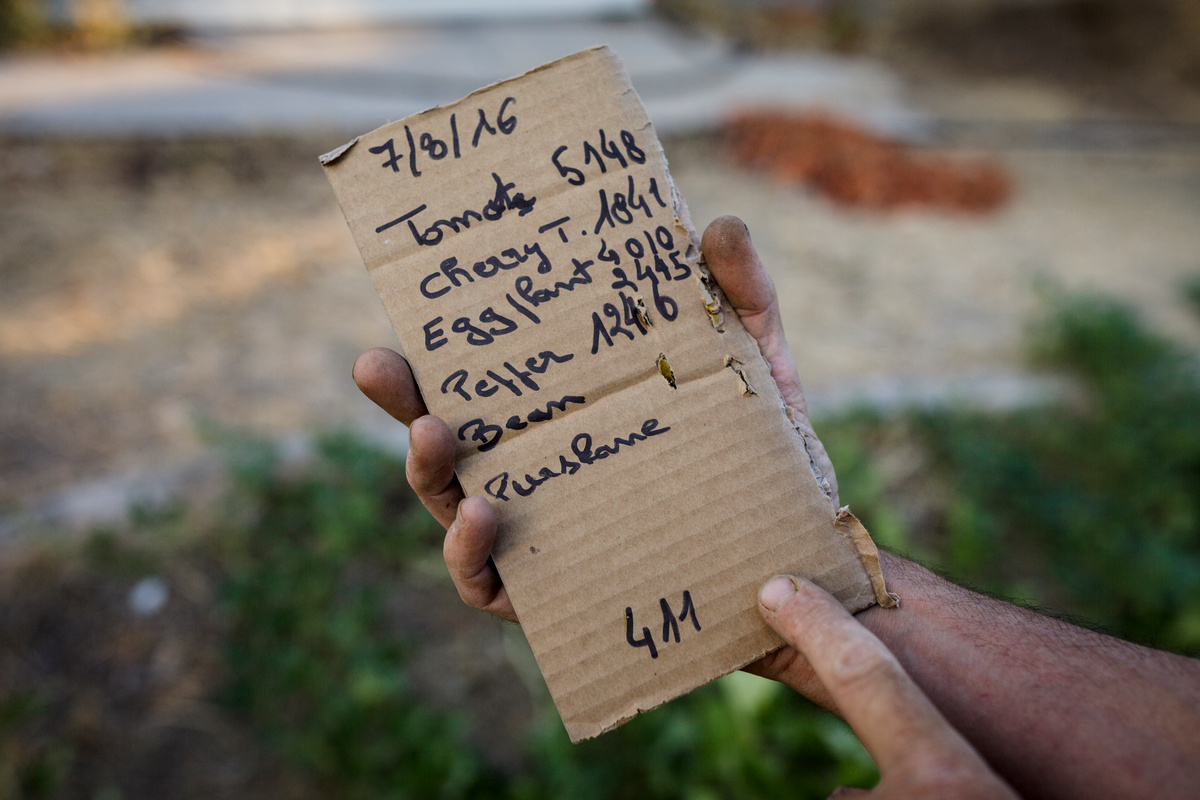 7/8/16
Tomato 5148
Cherry T. 1841
Eggplant 4010
2445
Pepper 1246
Bean
Purslane
411